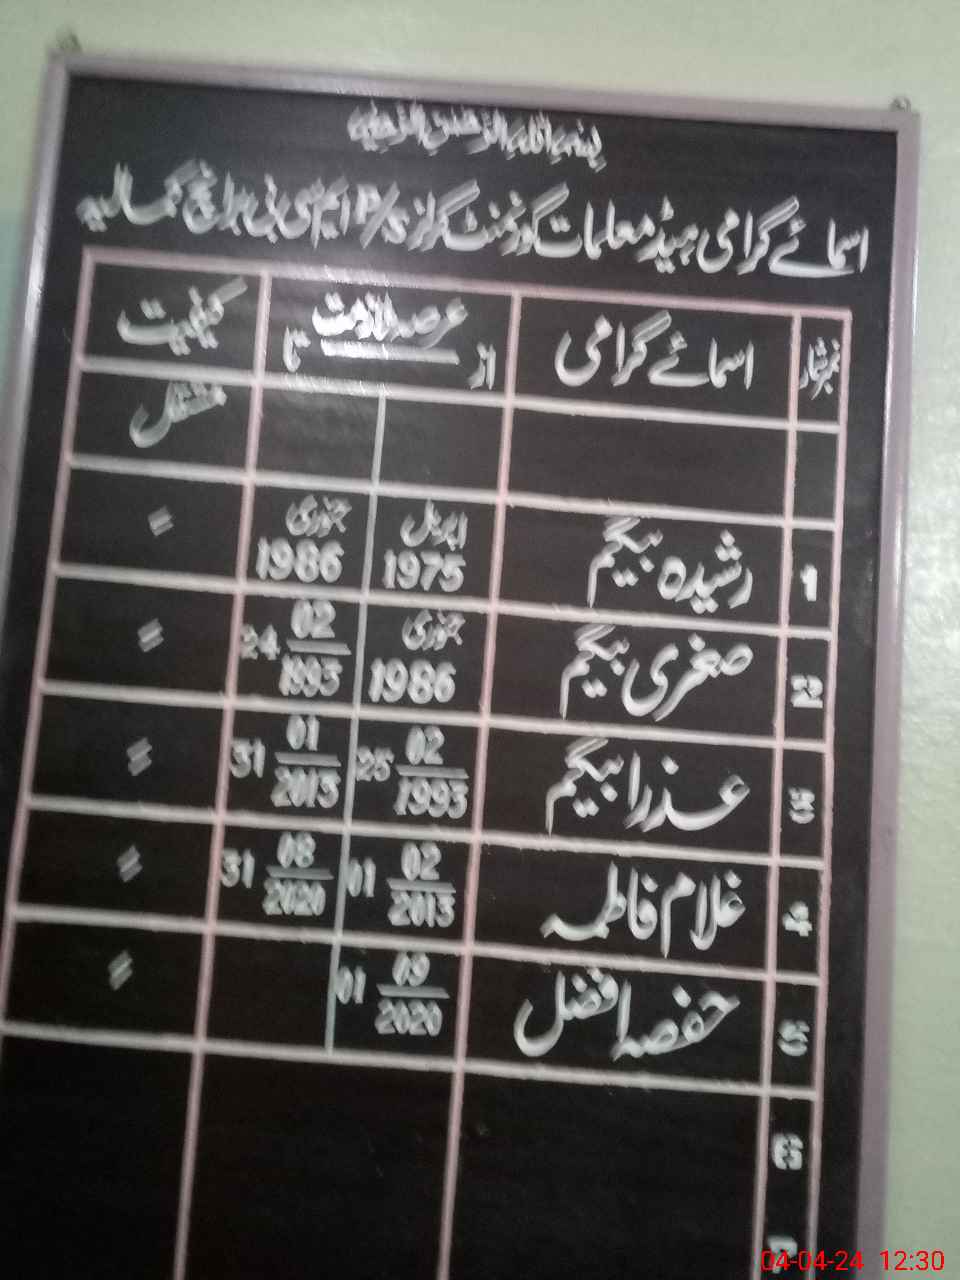 بسم اللہ الرحمن الرحیم
اسمائے گرامی ہیڈ معلمات گورنمنٹ گرلز P/S ایم سی بی برانچ کمالیہ
نمبر شمار اسمائے گرامی عرصہ ملازمت کیفیت
از تا
مستقل
1 رشیدہ بیگم اپریل 1975 جنوری 1986 〃
2 صغری بیگم جنوری 1986 24 02/1993 〃
3 عذرا بیگم 25 02/1993 31 01/2013 〃
4 غلام فاطمہ 01 02/2013 31 08/2020 〃
5 حفصہ افضل 01 09/2020 〃
6
7
04-04-24 12:30